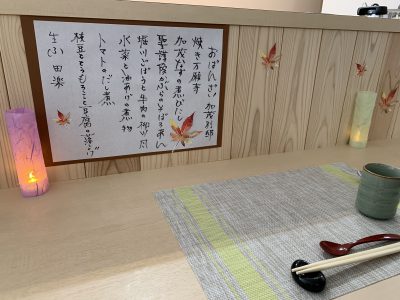 おばんざい 加茂別邸
焼き万願寺
加茂なすの煮びたし
聖護院かぶらのそぼろあん
堀川ごぼうと牛肉の柳川風
水菜と油あげの煮物
トマトのだし煮
枝豆ととうもろこし豆腐の揚げ
生ふ田楽